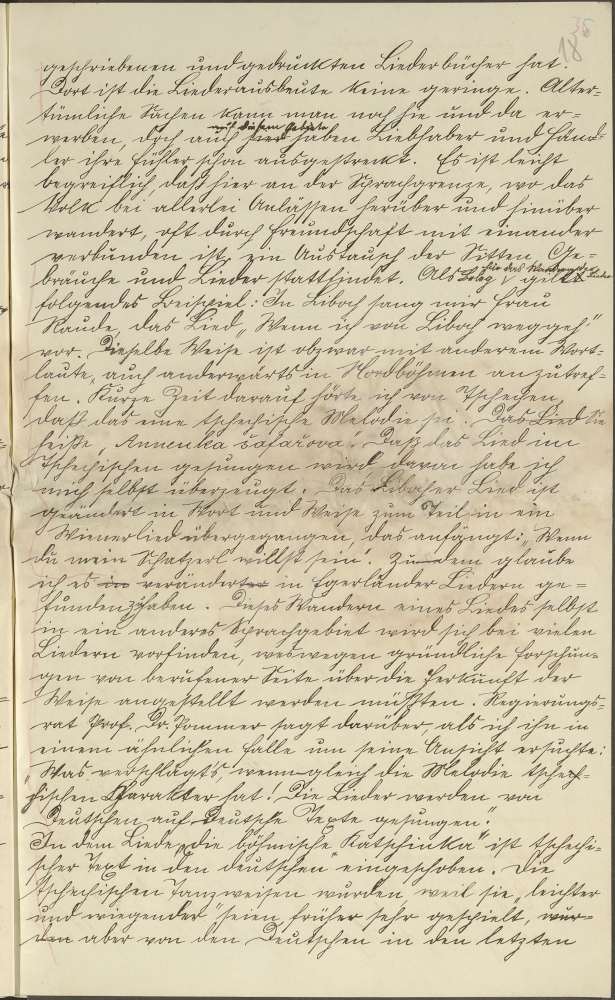 geschriebenen und gedruckten Liederbücher hat.
Dort ist die Liederausbeute keine geringe. Alter-
tümliche Sachen kann man noch hie und da er-
auf diesem Gebiete
werben, doch auch hier haben Liebhaber und Händ-
ler ihre Fühler schon ausgestreckt. Es ist leicht
begreiflich, daß hier an der Sprachgrenze, wo das
Volk bei allerlei Anlässen herüber und hinüber
wandert, oft durch Freundschaft mit einander
verbunden ist, ein Austausch der Sitten, Ge-
bräuche und Lieder stattfindet. Als Beleg für das Wandern der Lieder gilt
folgendes Beispiel: In Liboch sang mir Frau
Raude, das Lied "Wenn ich von Liboch weggeh'"
vor. Dieselbe Weise ist obzwar mit anderem Wort-
laute, auch anderwärts in Nordböhmen anzutref-
fen. Kurze Zeit darauf hörte ich von Tschechen,
daß das eine tschechische Melodie sei. Das Lied
heiße "Annenka šafařova". Daß das Lied im
Tschechischen gesungen wird, davon habe ich
mich selbst überzeugt. Das Libocher Lied ist
geändert in Wort und Weise zum Teil in ein
Wienerlied übergegangen, das anfängt: "Wenn
du mein Schatzerl willst sein". Zudem glaube
ich es in veränderter in Egerländer Liedern ge-
funden zu haben. Dieses Wandern eines Liedes selbst
in ein anderes Sprachgebiet wird sich bei vielen
Liedern vorfinden, weswegen gründliche Forschun-
gen von berufener Seite über die Herkunft der
Weise angestellt werden müßten. Regierungs-
rat Prof. Dr. Pommer sagt darüber, als ich ihn in
einem ähnlichen Falle um seine Ansicht ersuchte:
"Was verschlägt's, wenn gleich die Melodie tschech-
ischen Charakter hat! Die Lieder werden von
Deutschen auf deutsche Texte gesungen."
In dem Liede "die böhmische Katschinka" ist tschechi-
scher Text in den deutschen eingeschoben. Die
tschechischen Tanzweisen wurden, weil sie "leichter
und wiegender" seien früher sehr gespielt, wur-
den aber von den Deutschen in den letzten